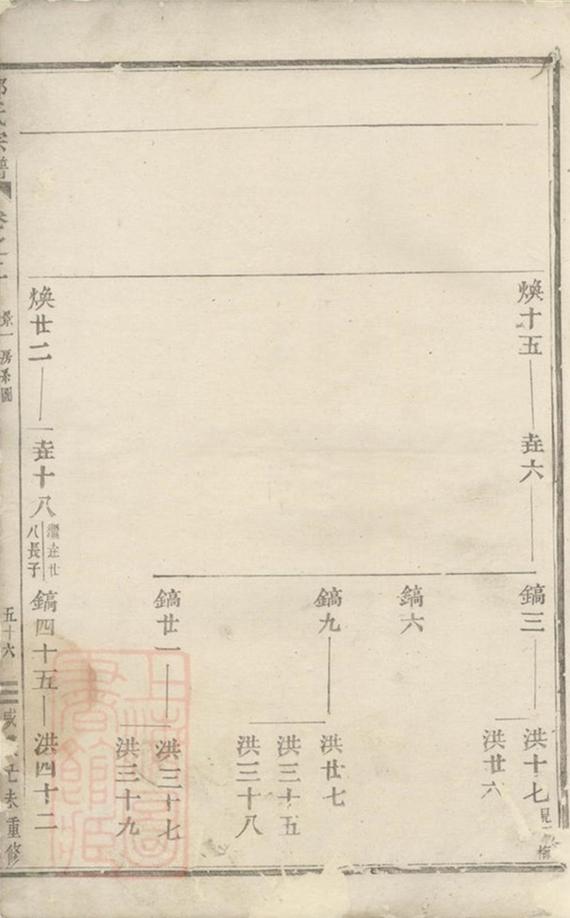 煥十五
垚六
鎬三
洪十七
洪廿六
鎬六
鎬九
洪廿七
洪三十五
洪三十八
鎬廿一
洪三十七
洪三十九
煥廿二
垚十八
繼垚廿
八長子
鎬四十五
洪四十二
氏宗譜
景一房系圖
五十六
未重修